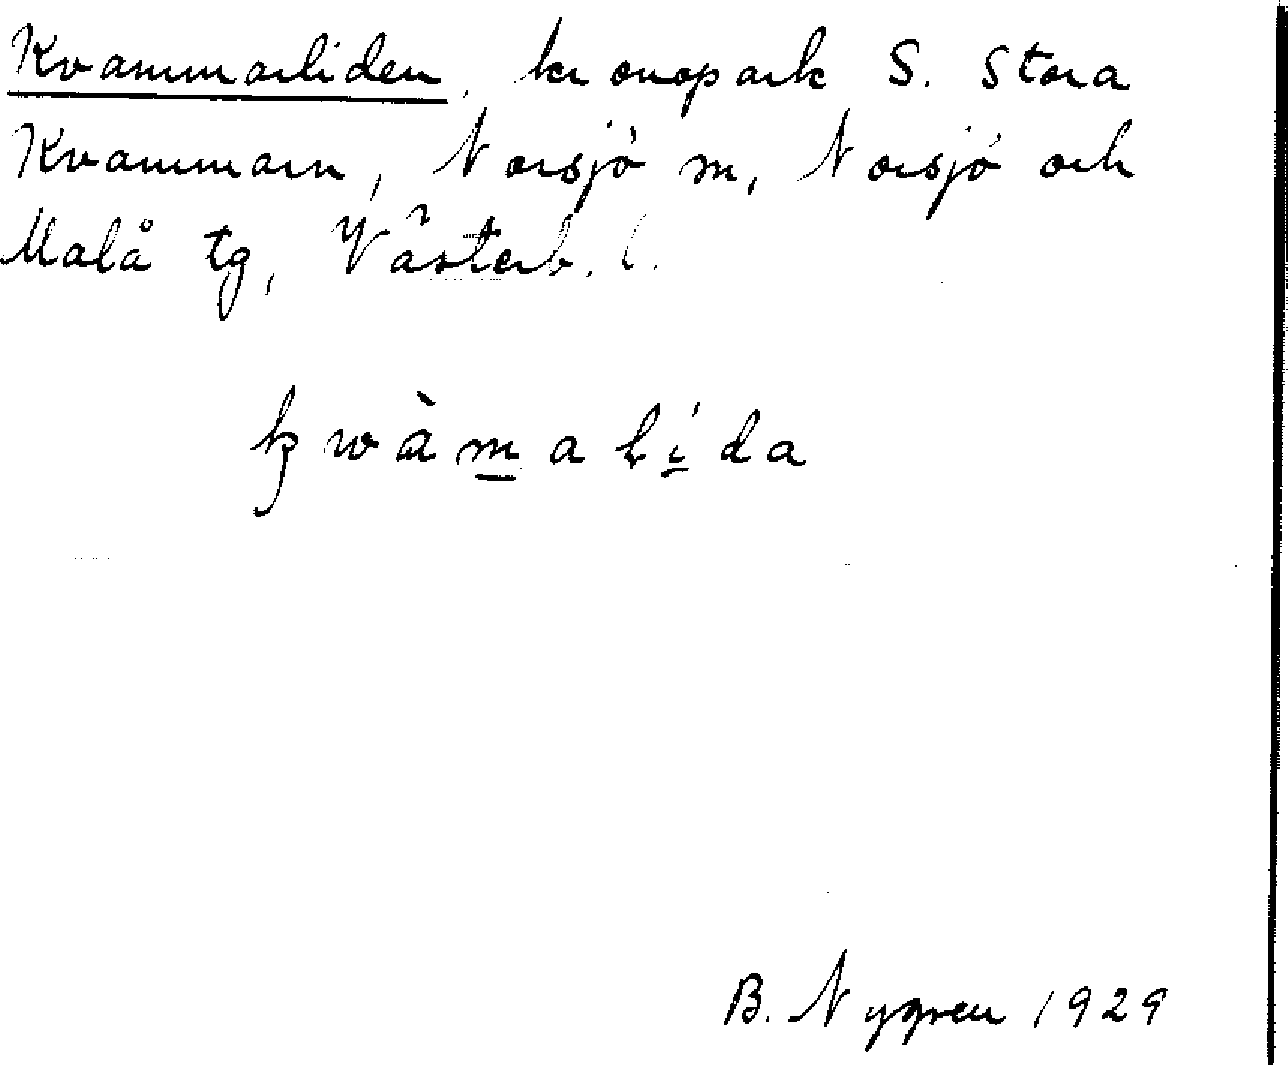 Kvammarliden, kronopark S. Stora
Kvammarn, Norsjö m, Norsjö och
Malå tg, Västerb. l.
kwàmalída
B. Nygren 1929